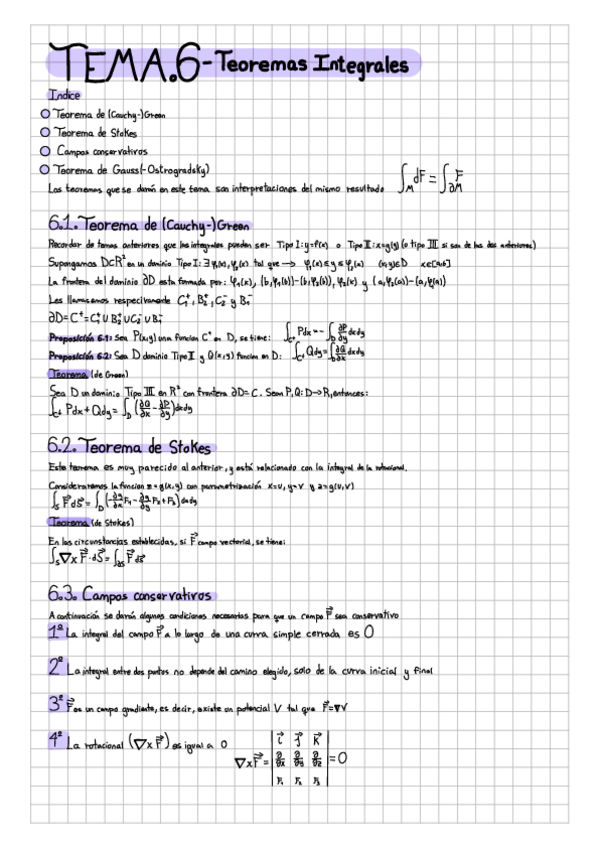 TEMA.6-Teoremas Integrales
Indice
Teorema de (Cauchy-)Green
Teorema de Stokes
Campos conservativos
Teorema de Gauss(-Ostrogradsky)
Los teoremas que se darán en este tema son interpretaciones del mismo resultado ∫_M dF = ∫_∂M F
6.1. Teorema de (Cauchy-)Green
Recordar de temas anteriores que las integrales pueden ser Tipo I: y=f(x) o Tipo II: x=g(y) (o tipo III si son de las dos anteriores)
Supongamos D⊂R² es un dominio Tipo I: ∃ φ₁(x), φ₂(x) tal que → φ₁(x)≤y≤φ₂(x) (x,y)∈D x∈[a,b]
La frontera del dominio ∂D esta formada por: φ₁(x), (b,φ₁(b))-(b,φ₂(b)), φ₂(x) y (a,φ₂(a))-(a,φ₁(a))
Les llamaremos respecivamente C₁⁺, B₂⁺, C₂⁻ y B₁⁻
∂D=C⁺=C₁⁺∪B₂⁺∪C₂⁻∪B₁⁻
Proposición 6.1: Sea P(x,y) una funcion C¹ en D, se tiene: ∫_C⁺ Pdx=-∫_D ∂P/∂y dxdy
Proposición 6.2: Sea D dominio Tipo II y Q(x,y) funcion en D: ∫_C⁺ Qdy=∫_D ∂Q/∂x dxdy
Teorema (de Green)
Sea D un dominio Tipo III en R² con frontera ∂D=C. Sean P,Q: D→R, entonces:
∫_C⁺ Pdx+Qdy=∫_D (∂Q/∂x-∂P/∂y)dxdy
6.2. Teorema de Stokes
Este teorema es muy parecido al anterior, y está relacionado con la integral de la rotacional.
Consideraremos la funcion z=g(x,y) con parametrización x=u, y=v y z=g(u,v)
∫_S F⃗dS⃗=∫_D (-∂g/∂x F₁-∂g/∂y F₂+F₃)dxdy
Teorema (de Stokes)
En las circunstancias establecidas, si F⃗ campo vectorial, se tiene:
∫_S ∇xF⃗·dS⃗=∫_∂S F⃗ds⃗
6.3. Campos conservativos
A continuación se darán algunas condiciones necesarias para que un campo F⃗ sea conservativo
1ª La integral del campo F⃗ a lo largo de una curva simple cerrada es 0
2ª La integral entre dos puntos no depende del camino elegido, solo de la curva inicial y final
3ª F⃗ es un campo gradiente, es decir, existe un potencial V tal que F⃗=∇V
4ª La rotacional (∇xF⃗) es igual a 0
∇xF⃗= | i⃗ j⃗ k⃗ |
| ∂/∂x ∂/∂y ∂/∂z | =0
| F₁ F₂ F₃ |